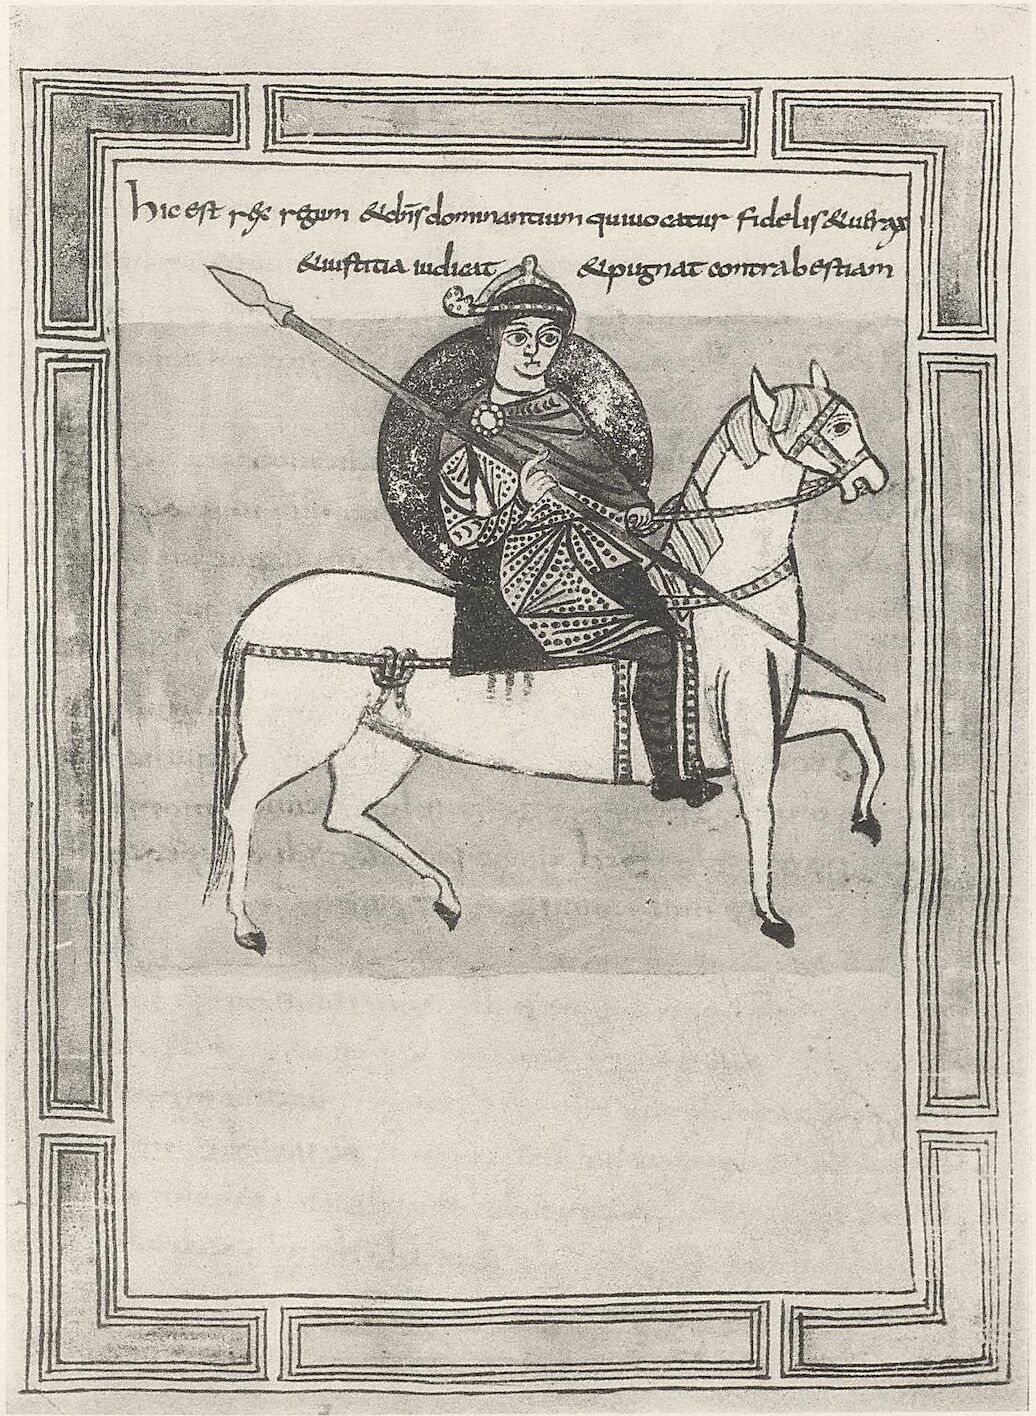 hic est rex regum & dn̄s dominantium qui uocatur fidelis & uerax
& iustitia iudicat & pugnat contra bestiam